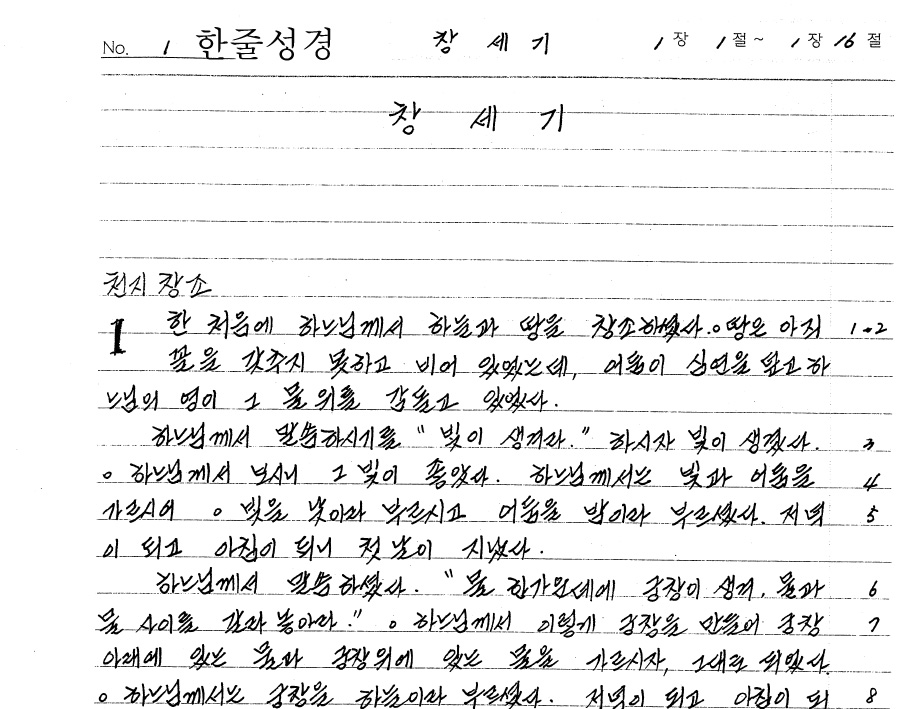 No. 1 한줄성경 창 세 기 1장 1절~ 1장 16절
창 세 기
천지 창조
1 한 처음에 하느님께서 하늘과 땅을 창조하셨다. ο땅은 아직 1-2
꼴을 갖추지 못하고 비어 있었는데, 어둠이 심연을 덮고 하
느님의 영이 그 물 위를 감돌고 있었다.
하느님께서 말씀하시기를 "빛이 생겨라." 하시자 빛이 생겼다. 3
ο 하느님께서 보시니 그 빛이 좋았다. 하느님께서는 빛과 어둠을 4
가르시어 ο 빛을 낮이라 부르시고 어둠을 밤이라 부르셨다. 저녁 5
이 되고 아침이 되니 첫날이 지났다.
하느님께서 말씀하셨다. "물 한가운데에 궁창이 생겨, 물과 6
물 사이를 갈라 놓아라." ο 하느님께서 이렇게 궁창을 만들어 궁창 7
아래에 있는 물과 궁창위에 있는 물을 가르시자, 그대로 되었다.
ο 하느님께서는 궁창을 하늘이라 부르셨다. 저녁이 되고 아침이 되 8